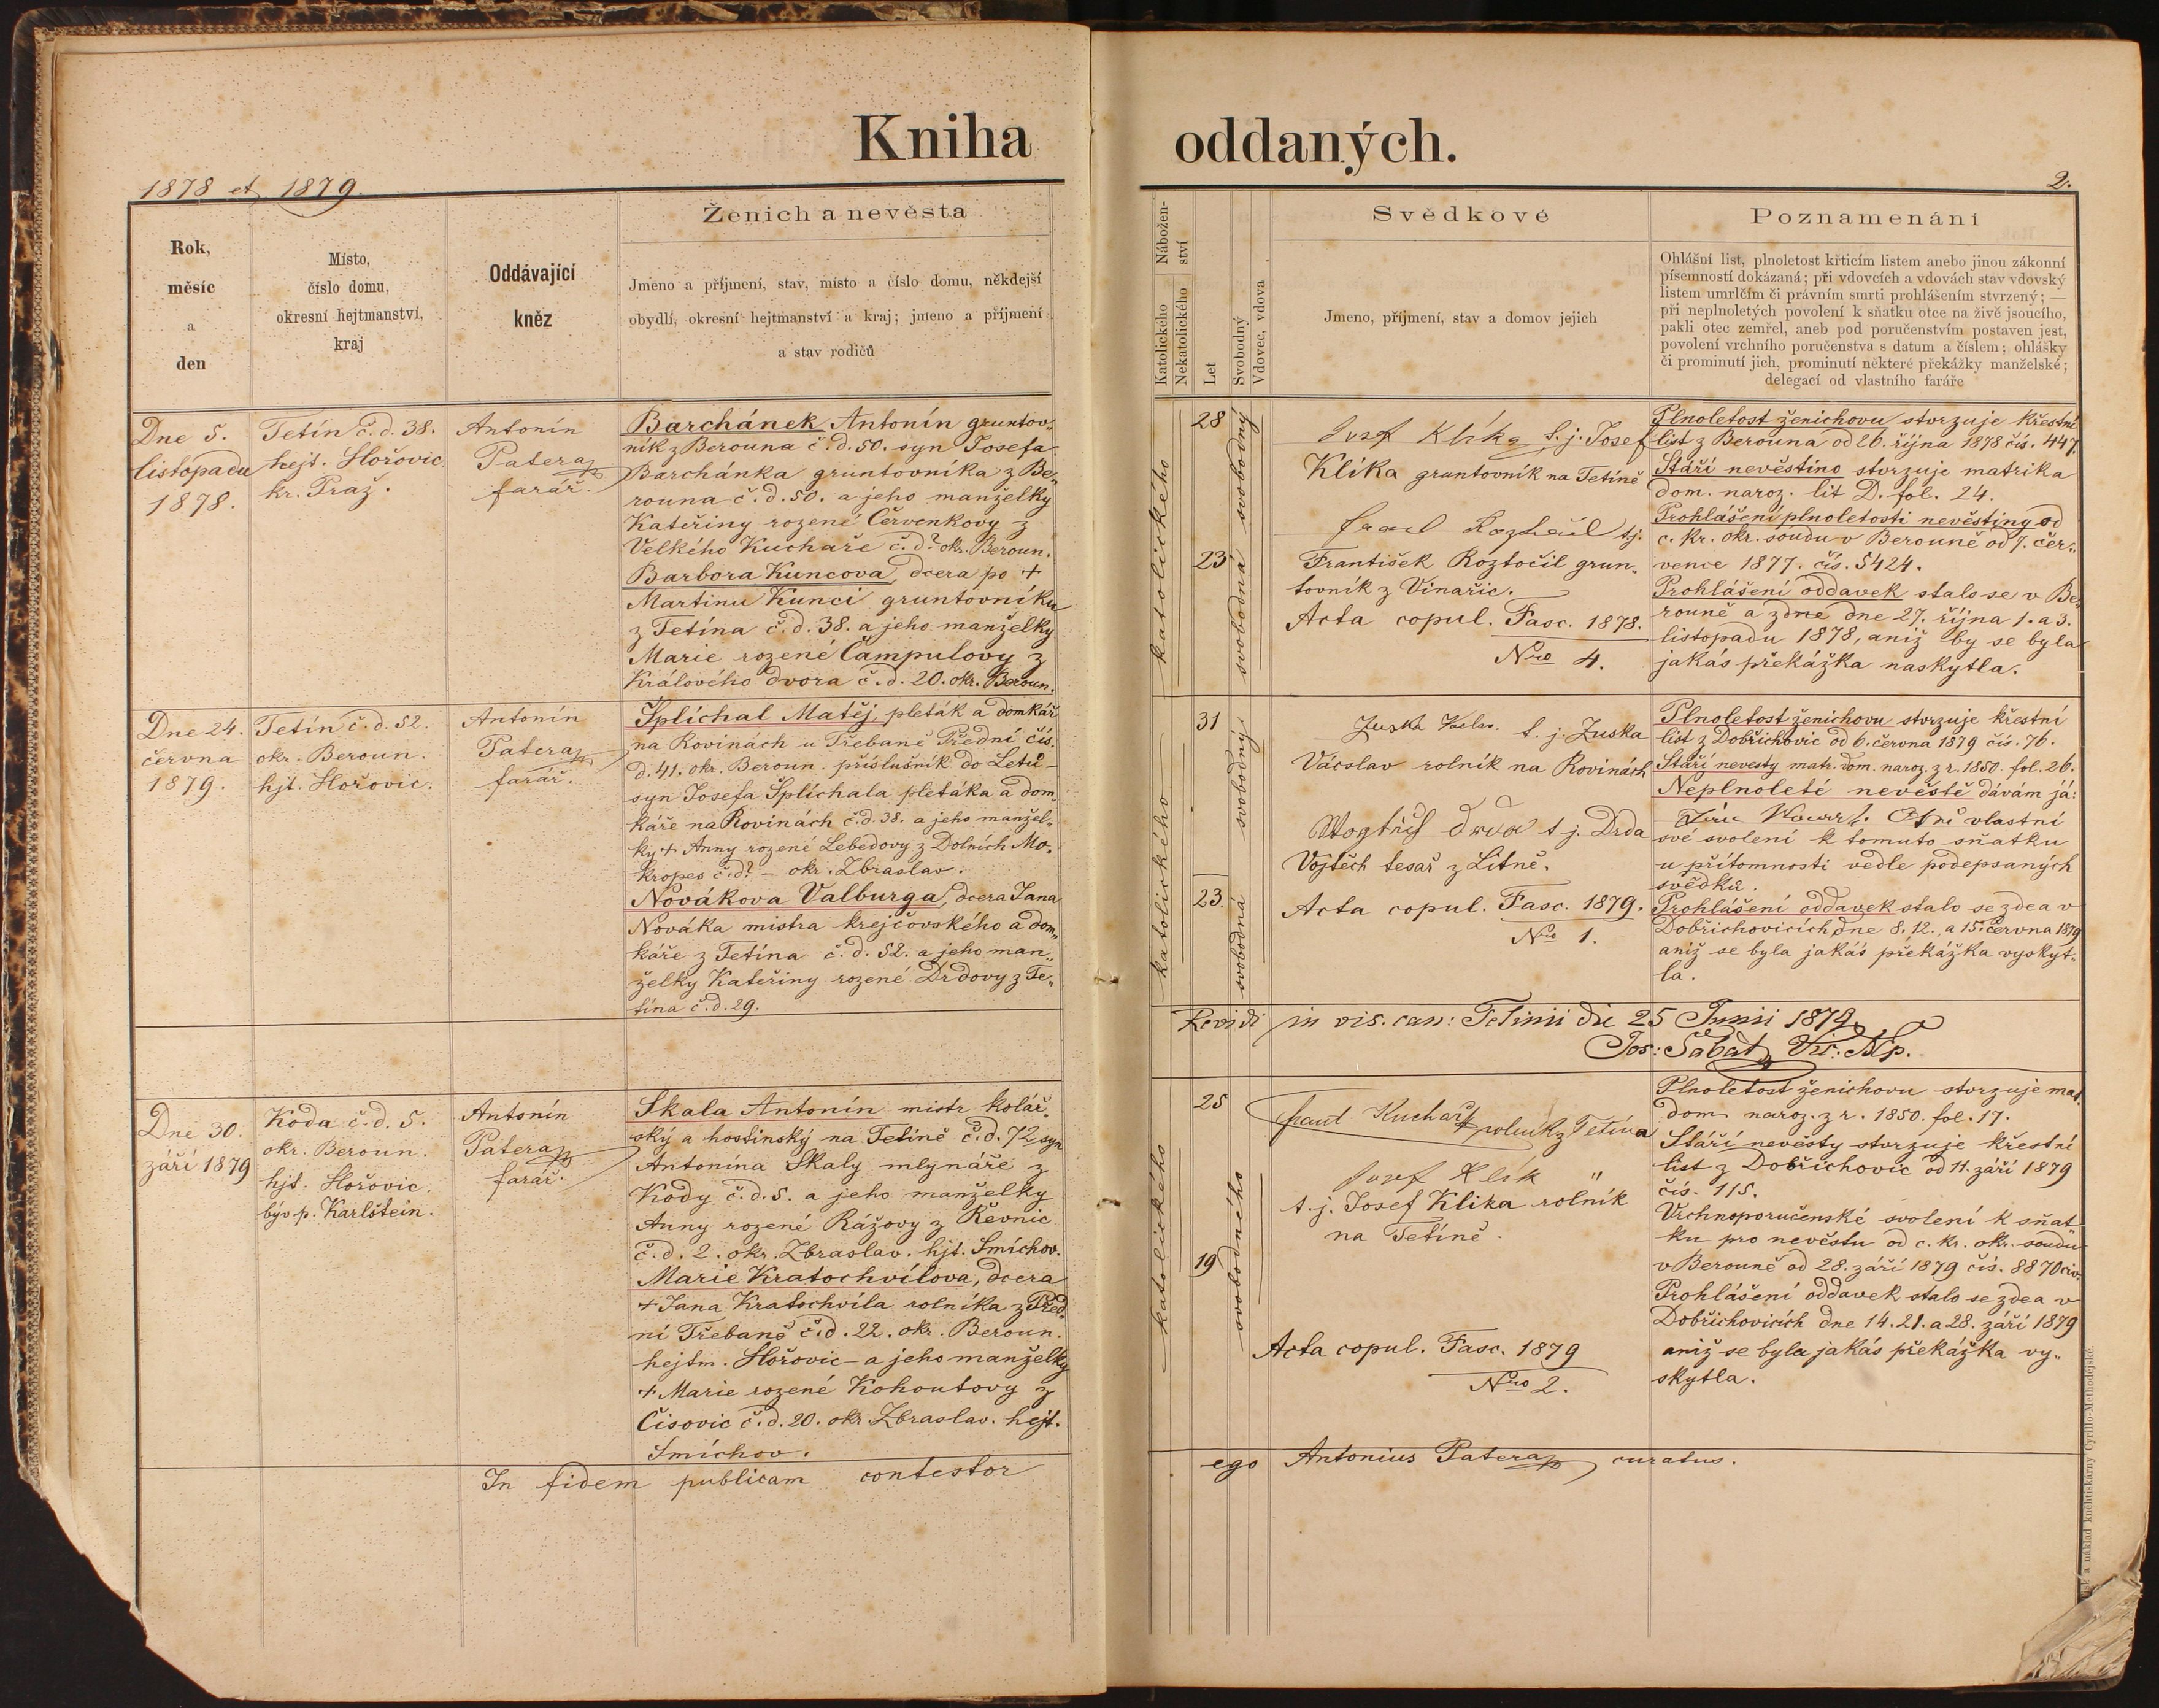 Kniha oddaných.
1878 et 1879.
2.
Rok,
měsíc
a
den
Místo,
číslo domu,
okresní hejtmanství,
kraj
Oddávající
kněz
Ženich a nevěsta
Jmeno a příjmení, stav, místo a číslo domu, někdejší
obydlí, okresní hejtmanství a kraj; jmeno a příjmení
a stav rodičů
Nábožen-
ství
Katolického
Nekatolického
Let
Svobodný
Vdovec, vdova
Svědkové
Jmeno, příjmení, stav a domov jejich
Poznamenání
Ohlášní list, plnoletost křticím listem anebo jinou zákonní
písemností dokázaná; při vdovcích a vdovách stav vdovský
listem umrlčím či právním smrti prohlášením stvrzený; —
při neplnoletých povolení k sňatku otce na živě jsoucího,
pakli otec zemřel, aneb pod poručenstvím postaven jest,
povolení vrchního poručenstva s datum a číslem; ohlášky
či prominutí jich, prominutí některé překážky manželské;
delegací od vlastního faráře
Dne 5.
listopadu
1878.
Tetín č. d. 38.
hejt. Hořovic.
kr. Praž.
Antonín
Patera
farář.
Barchánek Antonín gruntov„
ník z Berouna č. d. 50. syn Josefa
Barchánka gruntovníka z Be„
rouna č. d. 50. a jeho manželky
Kateřiny rozené Červenkovy z
Velkého Kuchaře č. d.? okr. Beroun.
Barbora Kuncova, dcera po +
Martinu Kunci gruntovníku
z Tetína č. d. 38. a jeho manželky
Marie rozené Čampulovy z
Králového dvora č. d. 20. okr. Beroun.
katolického
28
23
svobodný
svobodná
Josef Klika t. j. Josef
Klika gruntovník na Tetíně
t. j.
František Roztočil grun„
tovník z Vinařic.
Acta copul. Fasc. 1878.
Nro 4.
Plnoletost ženichovu stvrzuje křestní
list z Berouna od 26. října 1878 čís. 447.
Stáří nevěstino stvrzuje matrika
dom. naroz. lit D. fol. 24.
Prohlášení plnoletosti nevěstiny od
c. kr. okr. soudu v Berouně od 7. čer„
vence 1877. čís. 5424.
Prohlášení oddavek stalo se v Be„
rouně a zdne dne 27. října 1. a 3.
listopadu 1878, aniž by se byla
jakás překážka naskytla.
Dne 24.
června
1879.
Tetín č. d. 52.
okr. Beroun.
hjt. Hořovic.
Antonín
Patera
farář.
Šplíchal Matěj, pleták a domkář
na Rovinách u Třebaně Přední čís.
d. 41. okr. Beroun. příslušník do Letů –
syn Josefa Šplíchala pletáka a dom„
káře na Rovinách č. d. 38. a jeho manžel„
ky + Anny rozené Lebedovy z Dolních Mo„
kropes č. d? – okr. Zbraslav.
Novákova Valburga, dcera Jana
Nováka mistra krejčovského a dom„
káře z Tetína č. d. 52. a jeho man„
želky Kateřiny rozené Drdovy z Te„
tína č. d. 29.
katolického
31
23.
svobodný
svobodná
Zuska t. j. Zuska
Václav rolník na Rovinách
t. j. Drda
Vojtěch tesař z Litně.
Acta copul. Fasc. 1879.
Nro 1.
Plnoletost ženichovu stvrzuje křestní
list z Dobřichovic od 6. června 1879 čís. 76.
Stáří nevesty matr. dom. naroz. z r. 1850. fol. 26.
Neplnoleté nevěstě dávám já:
vlastní
své svolení k tomuto sňatku
u přítomnosti vedle podepsaných
svědků.
Prohlášení oddavek stalo se zde a v
Dobřichovicích dne 8. 12., a 15. června 1879
aniž se byla jakás překážka vyskyt„
la.
Revidi in vis. can: Tetinii die 25 Junii 1879.
Jos: Šabat, Vic: Mp.
Dne 30.
září 1879
Koda č. d. 5.
okr. Beroun.
hjt. Hořovic.
býv. p. Karlštein.
Antonín
Patera
farář.
Skala Antonín mistr kolář„
ský a hostinský na Tetíně č. d. 72 syn
Antonína Skaly mlynáře z
Kody č. d. 5. a jeho manželky
Anny rozené Rážovy z Řevnic
č. d. 2. okr. Zbraslav. hjt. Smíchov.
Marie Kratochvílova, dcera
+ Jana Kratochvíla rolníka z Před„
ní Třebaně č. d. 22. okr. Beroun.
hejtm. Hořovic – a jeho manželky
+ Marie rozené Kohoutovy z
Čisovic č. d. 20. okr. Zbraslav. hejt.
Smíchov.
katolického
25
19
svobodného
Frant Kuchař rolník z Tetína
Josef Klik "
t. j. Josef Klika rolník
na Tetíně.
Acta copul. Fasc. 1879
Nro 2.
Plnoletost ženichovu stvrzuje mat.
dom. naroz. z r. 1850. fol. 17.
Stáří nevěsty stvrzuje křestní
list z Dobřichovic od 11. září 1879
čís. 115.
Vrchnoporučenské svolení k sňat„
ku pro nevěstu od c. kr. okr. soudu
v Berouně od 28. září 1879 čís. 8870 civ.
Prohlášení oddavek stalo se zde a v
Dobřichovicích dne 14. 21. a 28. září 1879
aniž se byla jakás překážka vy„
skytla.
In fidem publicam contestor ego Antonius Patera curatus.
a náklad knihtiskárny Cyrillo-Methodějské.